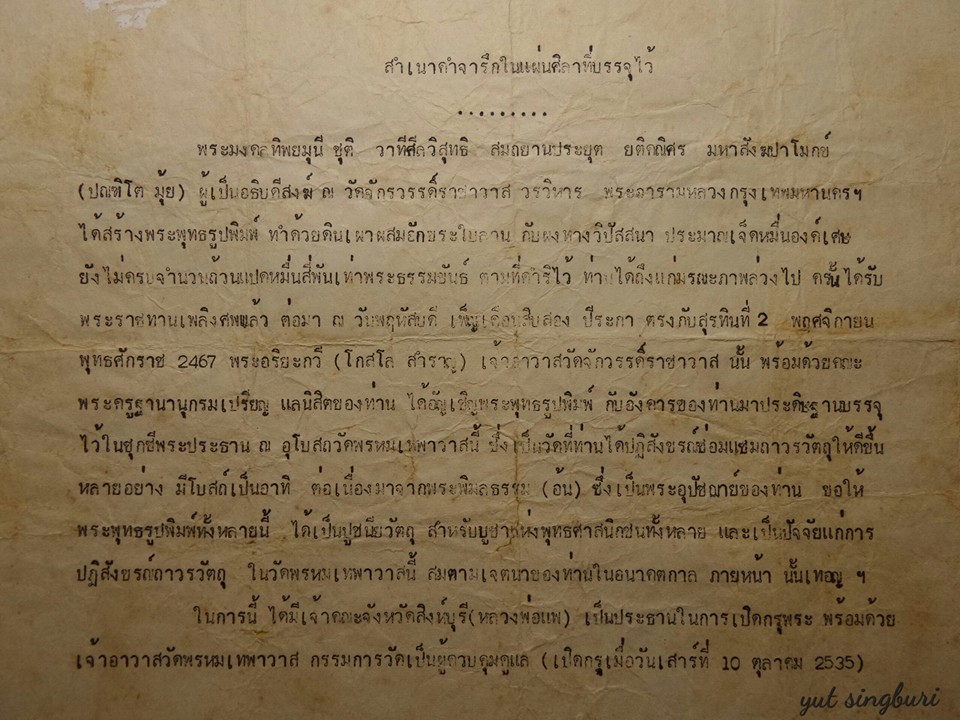 สำเนาคำจารึกในแผ่นศิลาที่บรรจุไว้
.........
พระมงคลทิพยมุนี ชุติ วาทีศีลวิสุทธิ สมถยานประยุต ยติคณิศร มหาสังฆปาโมกข์
(ปณฑิโต มุ้ย) ผู้เป็นอธิบดีสงฆ์ ณ วัดจักรวรรดิ์ราชาวาส วรวิหาร พระอารามหลวงกรุงเทพมหานครฯ
ได้สร้างพระพุทธรูปพิมพ์ ทำด้วยดินเผาผสมอักขระใบลาน กับผงทางวิปัสสนา ประมาณเจ็ดหมื่นองค์เศษ
ยังไม่ครบจำนวนถ้วนแปดหมื่นสี่พันเท่าพระธรรมขันธ์ ตามที่ดำริไว้ ท่านได้ถึงแก่มรณะภาพล่วงไป ครั้นได้รับ
พระราชทานเพลิงศพแล้ว ต่อมา ณ วันพฤหัสบดี เพ็ญเดือนสิบสอง ปีระกา ตรงกับสุรทินที่ 2 พฤศจิกายน
พุทธศักราช 2467 พระอริยะกวี (โกสโล สำราญ) เจ้าอาวาสวัดจักวรรดิ์ราชาวาส นั้น พร้อมด้วยคณะ
พระครูฐานานุกรมเปรียญ แลนิสิตของท่าน ได้อัญเชิญพระพุทธรูปพิมพ์ กับอังคารของท่านมาประดิษฐานบรรจุ
ไว้ในชุกชีพระประธาน ณ อุโบสถวัดพรหมเทพาวาสนี้ ซึ่งเป็นวัดที่ท่านได้ปฏิสังขรณ์ซ่อมแซมถาวรวัตถุให้ดีขึ้น
หลายอย่าง มีโบสถ์เป็นอาทิ ต่อเนื่องมาจากพระพิมลธรรม (อ้น) ซึ่งเป็นพระอุปัชฌาย์ของท่าน ขอให้
พระพุทธรูปพิมพ์ทั้งหลายนี้ ได้เป็นปูชนียวัตถุ สำหรับบูชาแห่งพุทธศาสนิกชนทั้งหลาย และเป็นปัจจัยแก่การ
ปฏิสังขรณ์ถาวรวัตถุ ในวัดพรหมเทพาวาสนี้ สมตามเจตนาของท่านในอนาคตกาล ภายหน้า นั้นเทอญ ฯ
ในการนี้ ได้มีเจ้าคณะจังหวัดสิงห์บุรี(หลวงพ่อแพ) เป็นประธานในการเปิดกรุพระ พร้อมด้วย
เจ้าอาวาสวัดพรหมเทพาวาส กรรมการวัดเป็นผู้ควบคุมดูแล (เปิดกรุเมื่อวันเสาร์ที่ 10 ตุลาคม 2535)
yut singburi